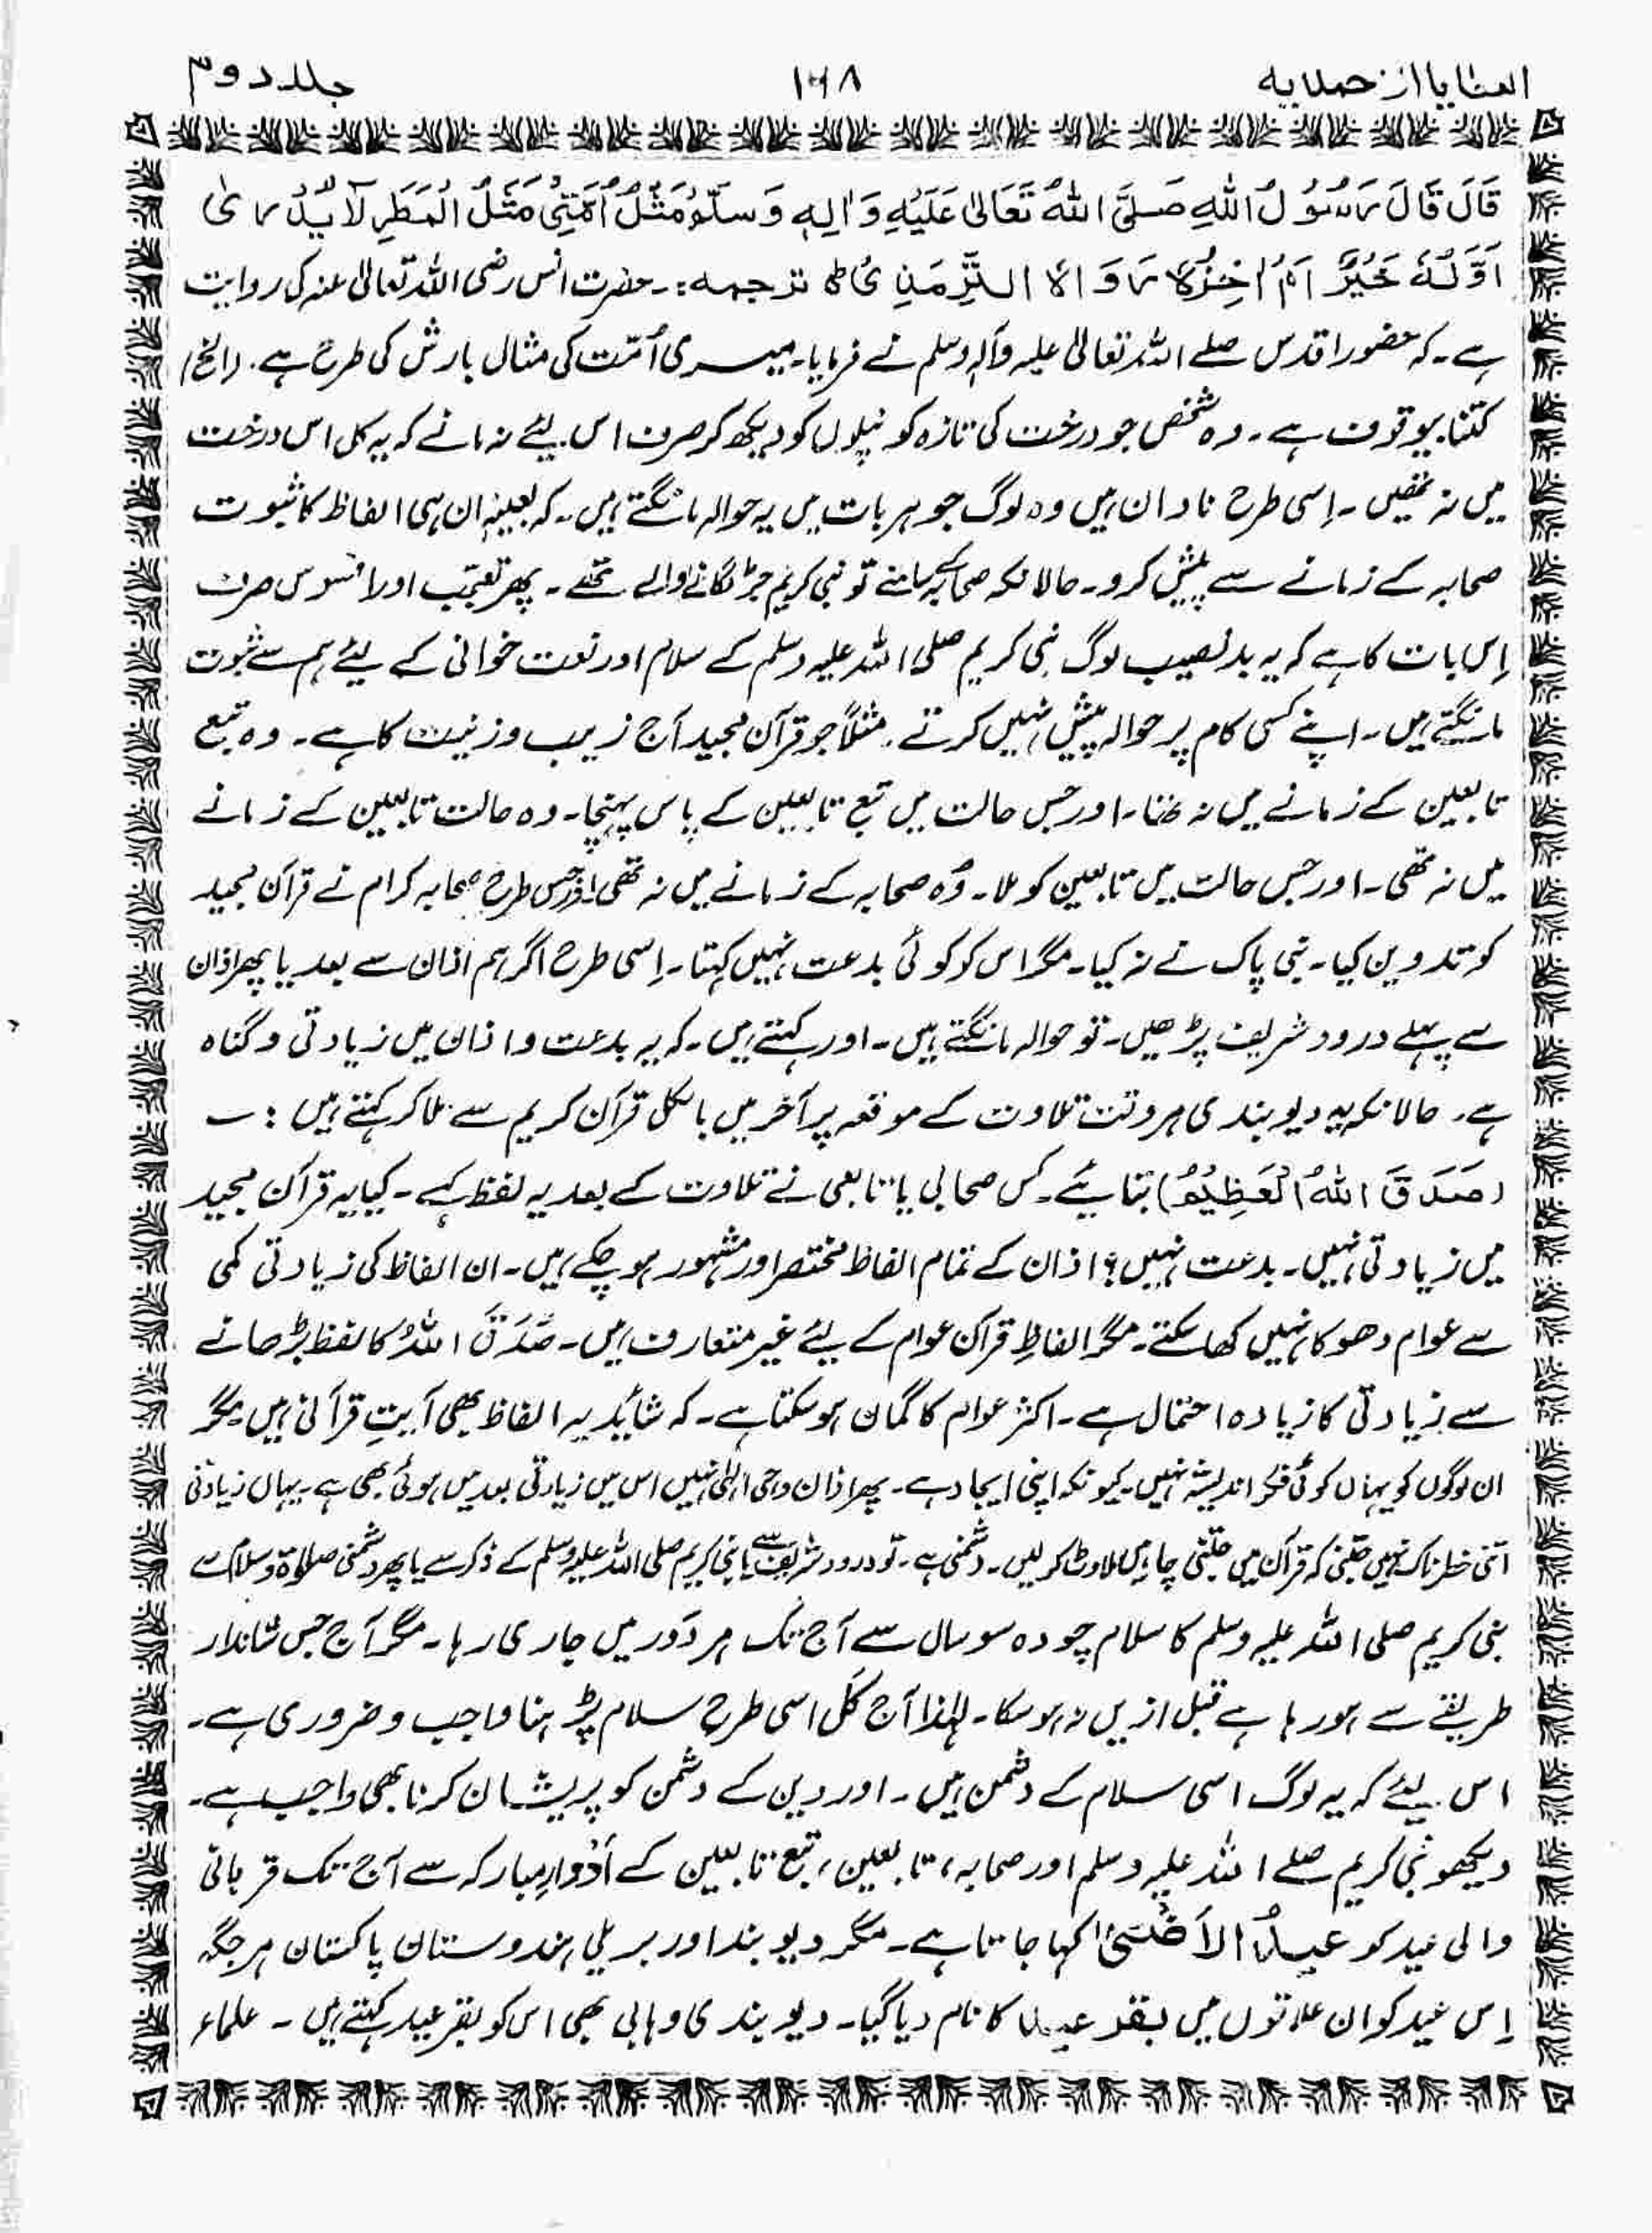 العطایا از حمدیه ۱۶۸ جلد دوم
قَالَ قَالَ رَسُوْلُ اللهِ صَلَّی اللهُ تَعَالٰی عَلَیْهِ وَاٰلِهٖ وَسَلَّمَ مَثَلُ اُمَّتِیْ مَثَلُ الْمَطَرِ لَا یُدْرٰی
اَوَّلُهٗ خَیْرٌ اَمْ اٰخِرُهٗ رَوَاهُ التِّرْمَذِیُّ ط ترجمه :۔ حضرت انس رضی اللہ تعالیٰ عنہ کی روایت
ہے۔ کہ حضور اقدس صلے اللہ تعالیٰ علیہ وآلہ وسلم نے فرمایا۔ میری اُمّت کی مثال بارش کی طرح ہے۔ (الخ)
کتنا بیوقوف ہے۔ وہ شخص جو درخت کی تازہ کونپلوں کو دیکھ کر صرف اس لیئے نہ مانے کہ یہ کل اس درخت
میں نہ تھیں۔ اِسی طرح نادان ہیں وہ لوگ جو ہر بات میں یہ حوالہ مانگتے ہیں۔ کہ بعینہٖ ان ہی الفاظ کا ثبوت
صحابہ کے زمانے سے پیش کرو۔ حالانکہ صحابہ کے سامنے تو نبی کریم جڑ لگانے والے تھے۔ پھر تعجّب اور افسوس صرف
اِس بات کا ہے کہ یہ بدنصیب لوگ نبی کریم صلی اللہ علیہ وسلم کے سلام اور نعت خوانی کے لیئے ہم سے ثبوت
مانگتے ہیں۔ اپنے کسی کام پر حوالہ پیش نہیں کرتے۔ مثلاً جو قرآن مجید آج زیب و زینت کا ہے۔ وہ تبع
تابعین کے زمانے میں نہ تھا۔ اور جس حالت میں تبع تابعین کے پاس پہنچا۔ وہ حالت تابعین کے زمانے
میں نہ تھی۔ اور جس حالت میں تابعین کو ملا۔ وُہ صحابہ کے زمانے میں نہ تھی اور جس طرح صحابہ کرام نے قرآن مجید
کو تدوین کیا۔ نبی پاک نے نہ کیا۔ مگر اس کو کوئی بدعت نہیں کہتا۔ اِسی طرح اگر ہم اذان سے بعد یا پھر اذان
سے پہلے درود شریف پڑھیں۔ تو حوالہ مانگتے ہیں۔ اور کہتے ہیں۔ کہ یہ بدعت و اذان میں زیادتی و گناہ
ہے۔ حالانکہ یہ دیوبندی ہر وقت تلاوت کے موقعہ پر آخر میں بالکل قرآن کریم سے ملا کر کہتے ہیں :۔
(صَدَقَ اللهُ الْعَظِیْمُ) بتایئے۔ کس صحابی یا تابعی نے تلاوت کے بعد یہ لفظ کہے۔ کیا یہ قرآن مجید
میں زیادتی نہیں۔ بدعت نہیں؟ اذان کے تمام الفاظ مختصر اور مشہور ہو چکے ہیں۔ ان الفاظ کی زیادتی کمی
سے عوام دھوکا نہیں کھا سکتے۔ مگر الفاظِ قرآن عوام کے لیئے غیر متعارف ہیں۔ صَدَقَ اللهُ کا لفظ بڑھانے
سے زیادتی کا زیادہ احتمال ہے۔ اکثر عوام کا گمان ہو سکتا ہے۔ کہ شائد یہ الفاظ بھی آیتِ قرآنی ہیں۔ مگر
ان لوگوں کو یہاں کوئی فکر اندیشہ نہیں۔ کیونکہ اپنی ایجاد ہے۔ پھر اذان وحی الٰہی نہیں اس میں زیادتی بعد میں ہوئی بھی ہے۔ یہاں زیادتی
اتنی خطرناک نہیں جتنی کہ قرآن میں جتنی چاہیں ملاوٹ کرلیں۔ دشمنی ہے۔ تو درود شریف سے یا نبی کریم صلی اللہ علیہ وسلم کے ذکر سے یا پھر دشمنی صلوٰۃ و سلام سے
نبی کریم صلی اللہ علیہ وسلم کا سلام چودہ سو سال سے آج تک ہر دَور میں جاری رہا۔ مگر آج جس شاندار
طریقے سے ہو رہا ہے قبل ازیں نہ ہو سکا۔ لہٰذا آج کَل اسی طرح سلام پڑہنا واجب و ضروری ہے۔
اس لیئے کہ یہ لوگ اسی سلام کے دشمن ہیں۔ اور دین کے دشمن کو پریشان کرنا بھی واجب ہے۔
دیکھو نبی کریم صلے اللہ علیہ وسلم اور صحابہ، تابعین، تبع تابعین کے اَدْوارِ مبارکہ سے آج تک قربانی
والی عید کو عیدُ الاَضْحیٰ کہا جاتا ہے۔ مگر دیوبند اور بریلی ہندوستان پاکستان ہر جگہ
اِس عید کو ان علاقوں میں بقر عید کا نام دیا گیا۔ دیوبندی وہابی بھی اس کو بقر عید کہتے ہیں۔ علماء